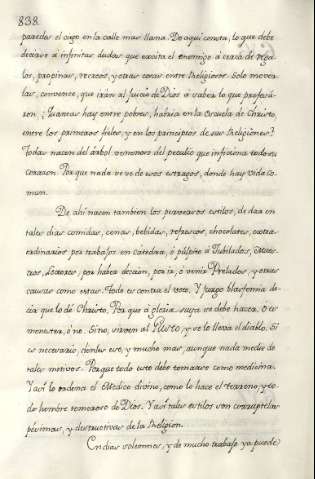 838.
paredes el ciego en la calle mas llana. De aqui consta, lo que debe
decirse á infinitas dudas que excita el enemigo á cerca de rega
los, propinas, recreos, y otras cosas entre Religiosos. Solo mover
las, convence, que irán al juicio de Dios á saber lo que profesá
ron. ¿Quantas hay entre pobres, habria en la Escuela de Christo,
entre los primeros fieles, y en los principios de sus Religiones?
Todas nacen del árbol venenoso del peculio que inficiona todo su
corazon. Por que nada se ve de esos estragos, donde hay vida co
mun.
De ahi nacen tambien los perversos estilos, de dar en
tales dias comidas, cenas, bebidas, refrescos, chocolates, extra-
ordinarios por trabajos en cátedra, ó púlpito á Jubilados, Maes
tros, Lectores, por haber leccion, por ir, ó venir Prelados, y otras
causas como estas. Todo es contra el voto. Y juzgo blasfemia de
cir que lo de Christo. Por que á gloria suya se debe hacer, ó es
menester, ó no. Si no, sirven al Pluto, y se lo lleva el diablo. Si
es necesario, denles eso, y mucho mas, aunque nada medie de
tales motivos. Porque todo esto debe tomarse como medicina.
Y asi lo ordena el Medico divino, como lo hace el terreno, y to
do hombre temeroso de Dios. Y asi tales estilos son corruptelas
pésimas, y destructivas de la Religion.
En dias solemnes, y de mucho trabajo ya puede